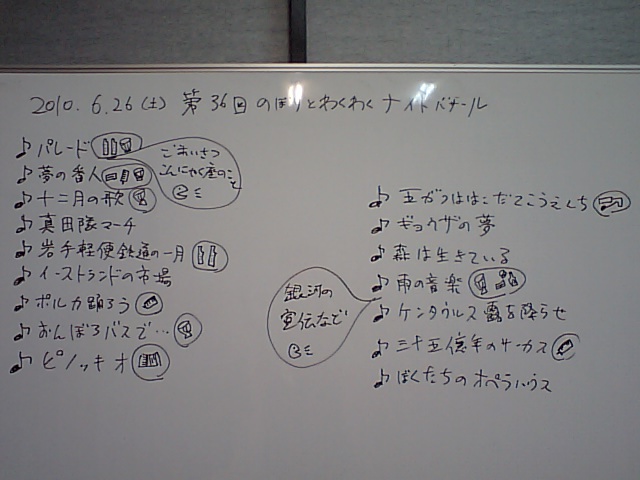 2010. 6.26(土) 第36回 のぼりとわくわくナイトバザール
♪ パレード
♪ 夢の番人
♪ 十二月の歌
♪ 真田隊マーチ
♪ 岩手軽便鉄道の一月
♪ イーストランドの市場
♪ ポルカ踊ろう
♪ おんぼろバスで…
♪ ピノッキオ
ごあいさつ
こんにゃく座のこと
♪ 五がつははこだてこうえんち
♪ ギョウザの夢
♪ 森は生きている
♪ 雨の音楽
♪ ケンタウルス 露を降らせ
♪ 三十五億年のサーカス
♪ ぼくたちのオペラハウス
銀河の
宣伝など